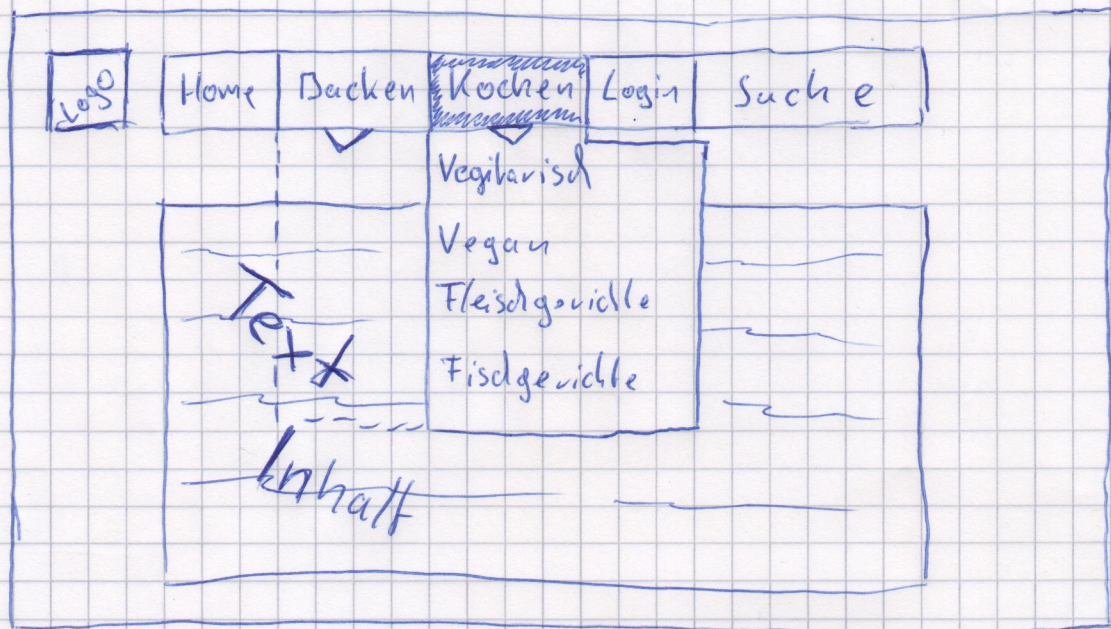 Logo Home Backen Kochen Login Suche
Vegitarisch
Vegan
Fleischgerichte
Fischgerichte
Text
Inhalt